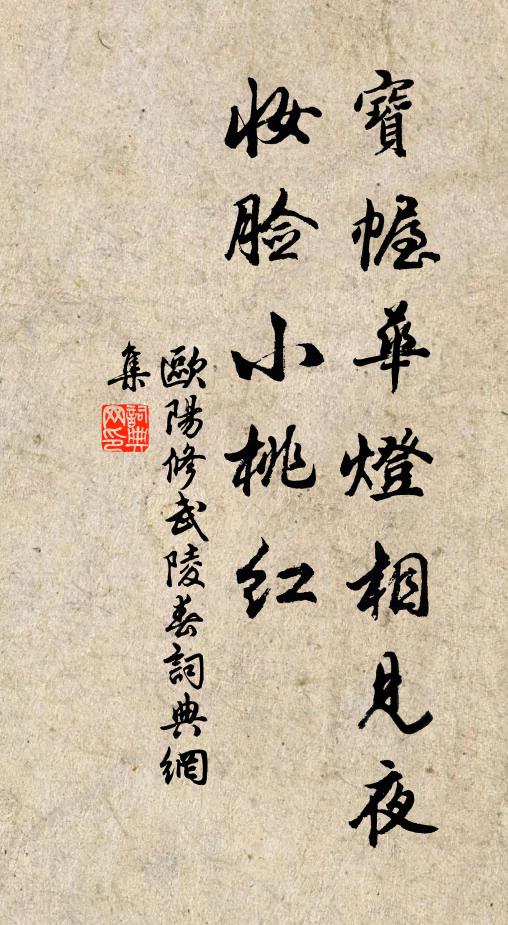 寶幄華燈相見夜
妝臉小桃紅
歐陽修武陵春詞典網
集
詞典
网印